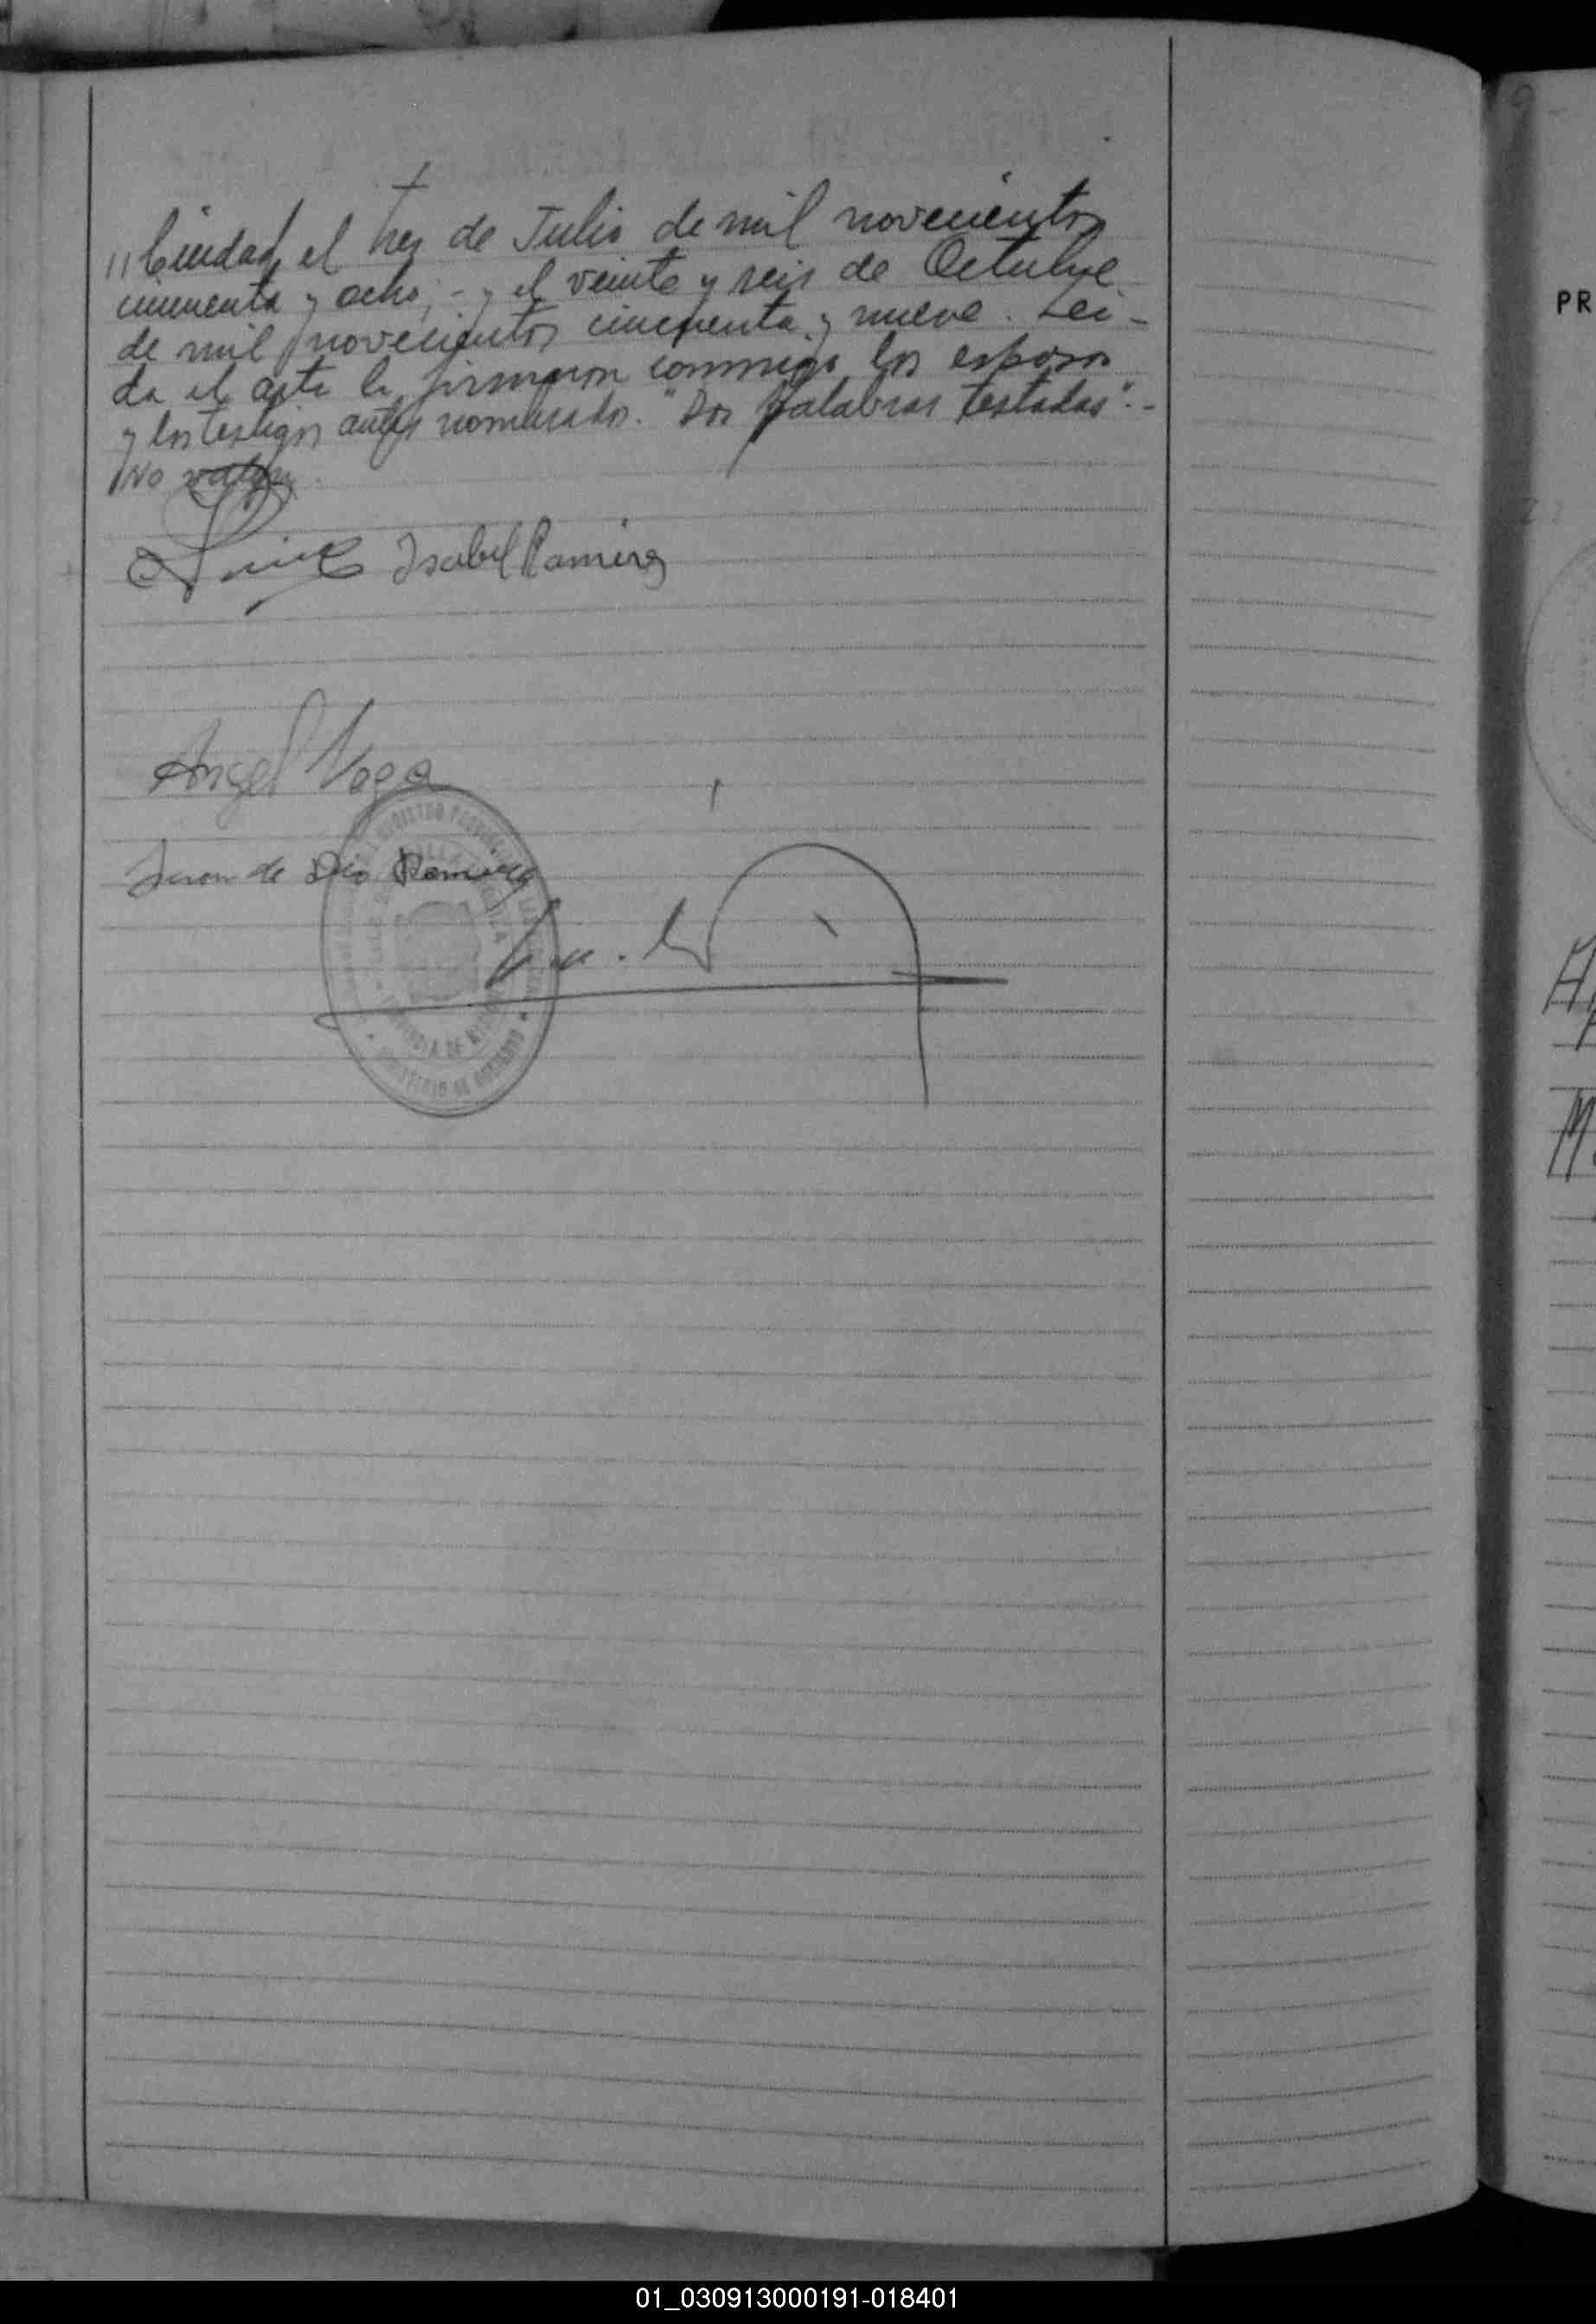 "Ciudad, el tres de Julio de mil novecientos
cincuenta y ocho; - y el veinte y seis de Octubre
de mil novecientos cincuenta y nueve. Leí-
da el acta la firmaron conmigo los esposos
y los testigos antes nombrados. "Dos palabras testadas".-
No valen.
Isabel Ramirez
Angel Vega
Juan de Dio Ramirez
REGISTRO
PR
01_030913000191-018401